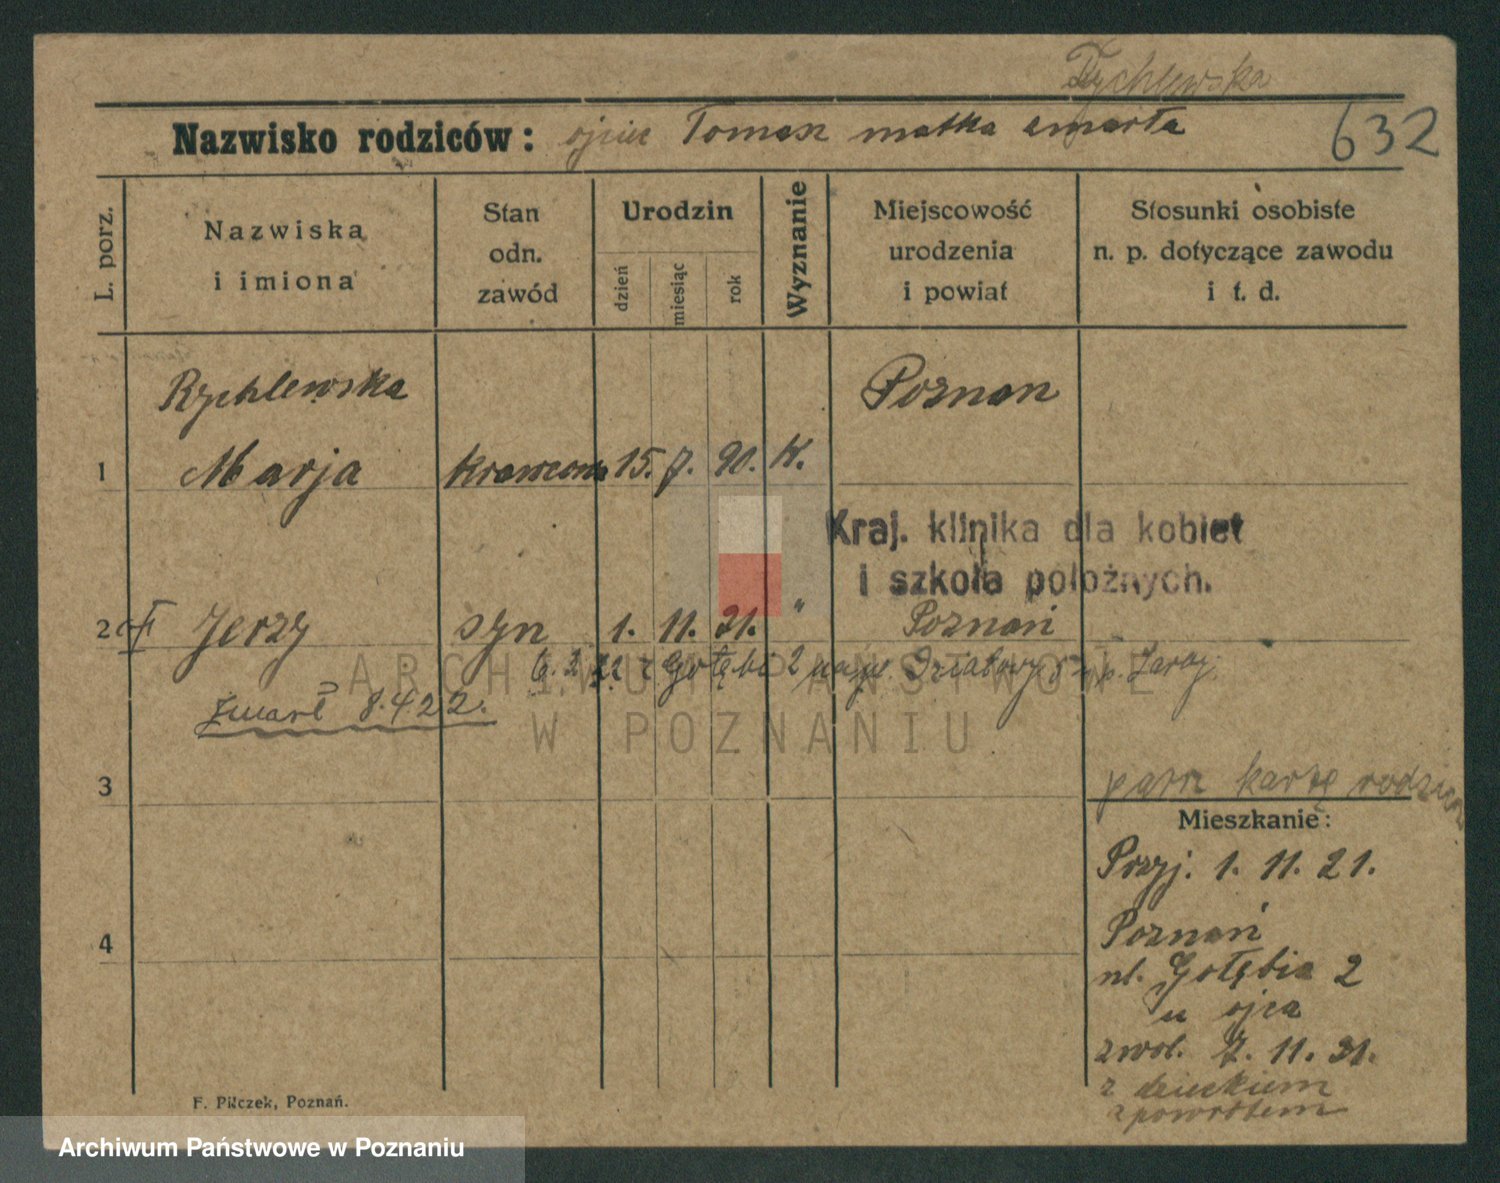 Rychlewska
Nazwisko rodziców: ojciec Tomasz matka zmarła
632
L. porz.
Nazwiska
i imiona
Stan
odn.
zawód
Urodzin
dzień
miesiąc
rok
Wyznanie
Miejscowość
urodzenia
i powiat
Stosunki osobiste
n. p. dotyczące zawodu
i t. d.
Rychlewska Poznan
1 Marja krawcowa 15. 7. 90. K.
Kraj. klinika dla kobiet
i szkoła położnych.
2 Jerzy syn 1. 11. 21. " Poznań
6. 2. 22 z Gołębia 2
zmarł 8.4.22.
ARCHIWUM PAŃSTWOWE
W POZNANIU
3
patrz kartę
Mieszkanie:
Przyj. 1. 11. 21.
4
Poznań
ul. Gołębia 2
u ojca
zwol. 7. 11. 21.
z dzieckiem
zpowrotem
F. Pilczek, Poznań.
Archiwum Państwowe w Poznaniu